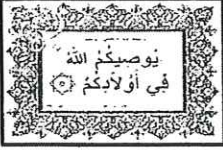 يُوصِيكُمُ اللهُ
فِي أَوْلَادِكُمْ